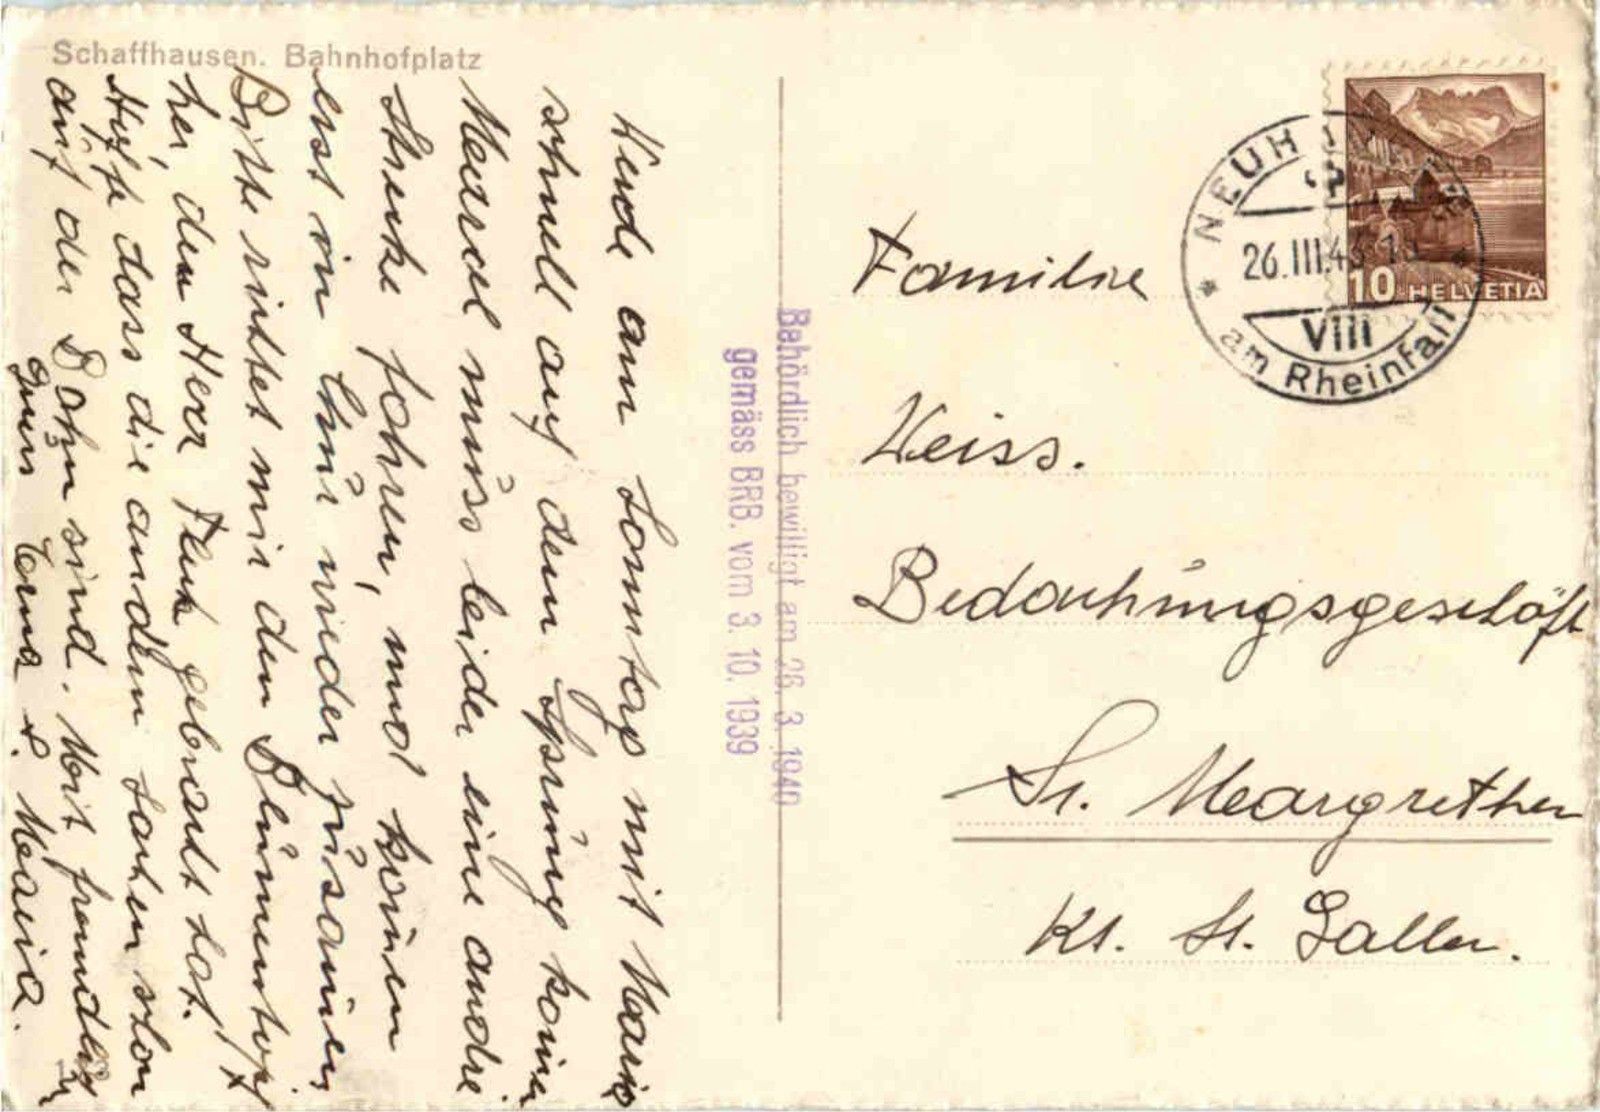 Schaffhausen. Bahnhofplatz
Werde am Sonntag mit Maria
schnell auf dem Sprung komen
Meardel müss leider eine andre
Strecke fahren, und komen
erst in Chür wieder züsamen
Bitte richtet mir den Blümentopf
her, den Herr Flück gebracht hat.
Hoffe dass die andern Sachen schon
auf der Bahn sind. Mit freundlich
Grüss Erna & Maria.
Behördlich bewilligt am 26. 3. 1940
gemäss BRB. vom 3. 10. 1939
NEUH
26.III.43-18
VIII
am Rheinfall
10 HELVETIA
Familie
Weiss.
Bedachüngsgeschäft
St. Margrethen
Kt. St. Gallen.